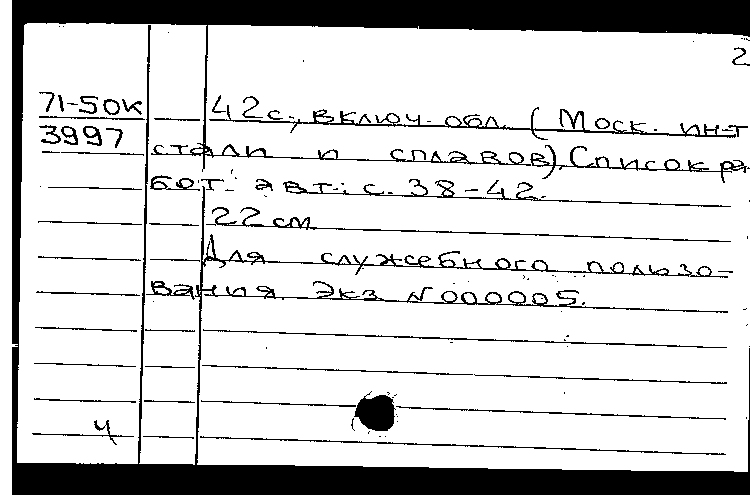 2
71-50К 42с., включ. обл. (Моск. ин-т
3997 стали и сплавов). Список ра-
бот. авт.: с. 38-42.
22 см
Для служебного пользо-
вания. Экз N000005.
ч